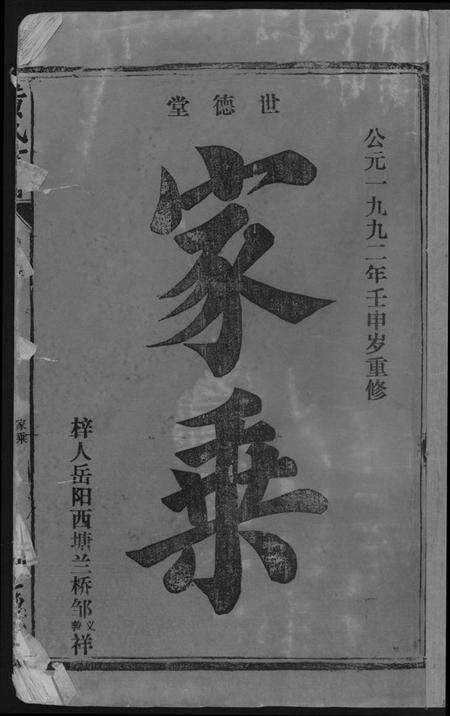 公元一九九二年壬申岁重修
世德堂
家乘
梓人岳阳西塘兰桥邹义善祥
家乘